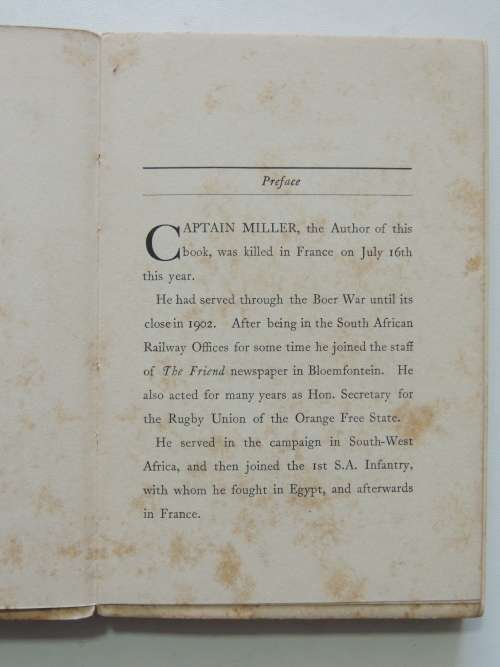 Preface
CAPTAIN MILLER, the Author of this
book, was killed in France on July 16th
this year.
He had served through the Boer War until its
close in 1902. After being in the South African
Railway Offices for some time he joined the staff
of The Friend newspaper in Bloemfontein. He
also acted for many years as Hon. Secretary for
the Rugby Union of the Orange Free State.
He served in the campaign in South-West
Africa, and then joined the 1st S.A. Infantry,
with whom he fought in Egypt, and afterwards
in France.